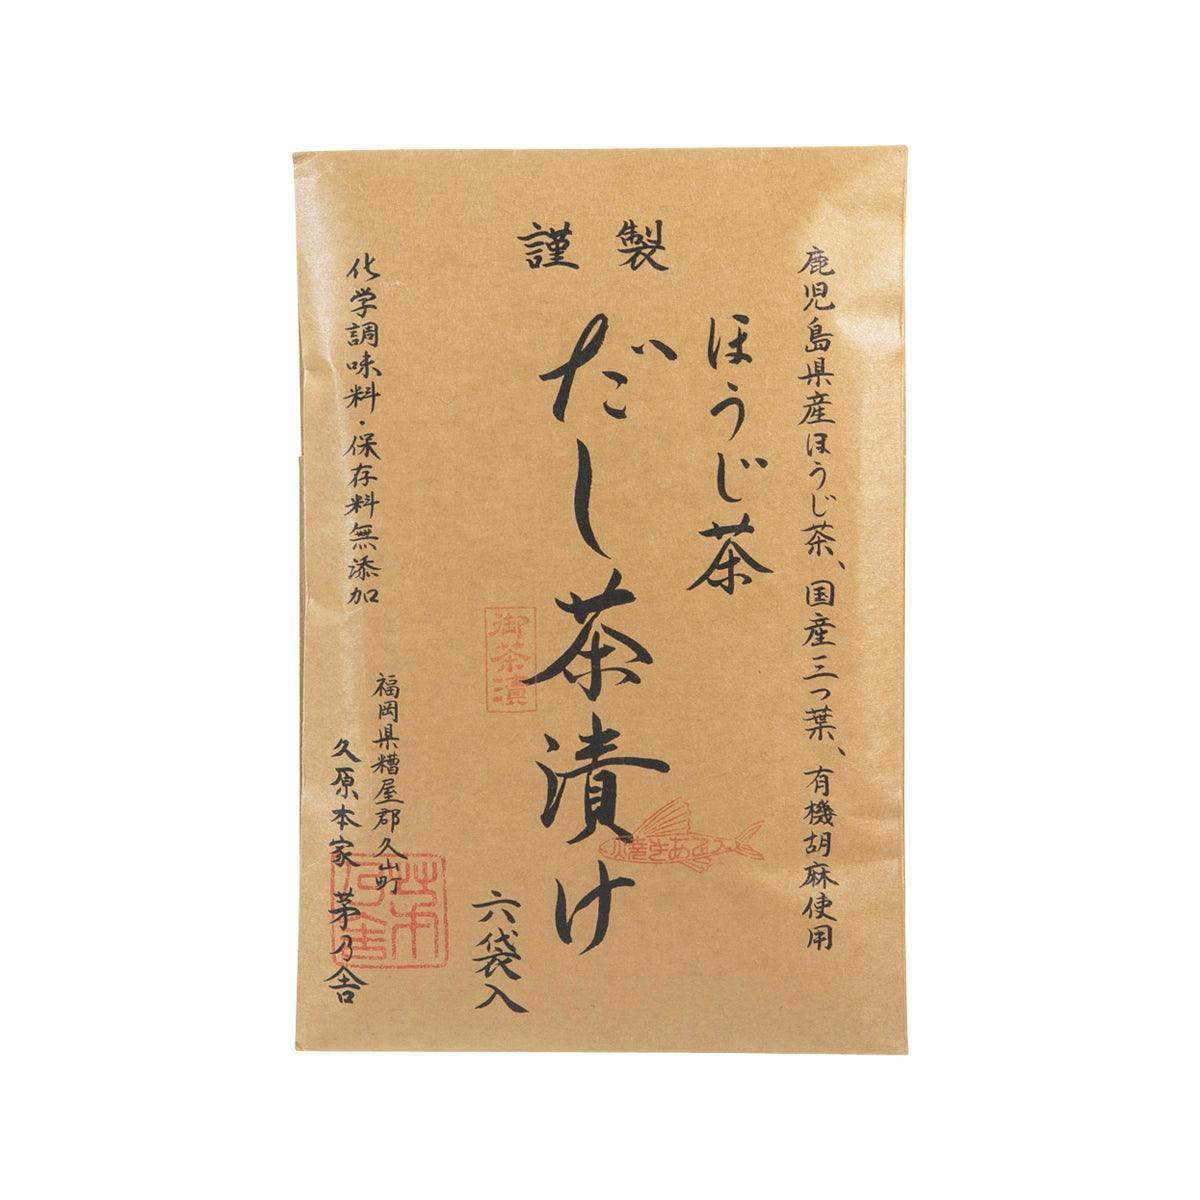 謹製
鹿児島県産ほうじ茶、国産三つ葉、有機胡麻使用
ほうじ茶
だし茶漬け
焼きあご入
御茶漬
六袋入
化学調味料・保存料無添加
福岡県糟屋郡久山町
久原本家 茅乃舎